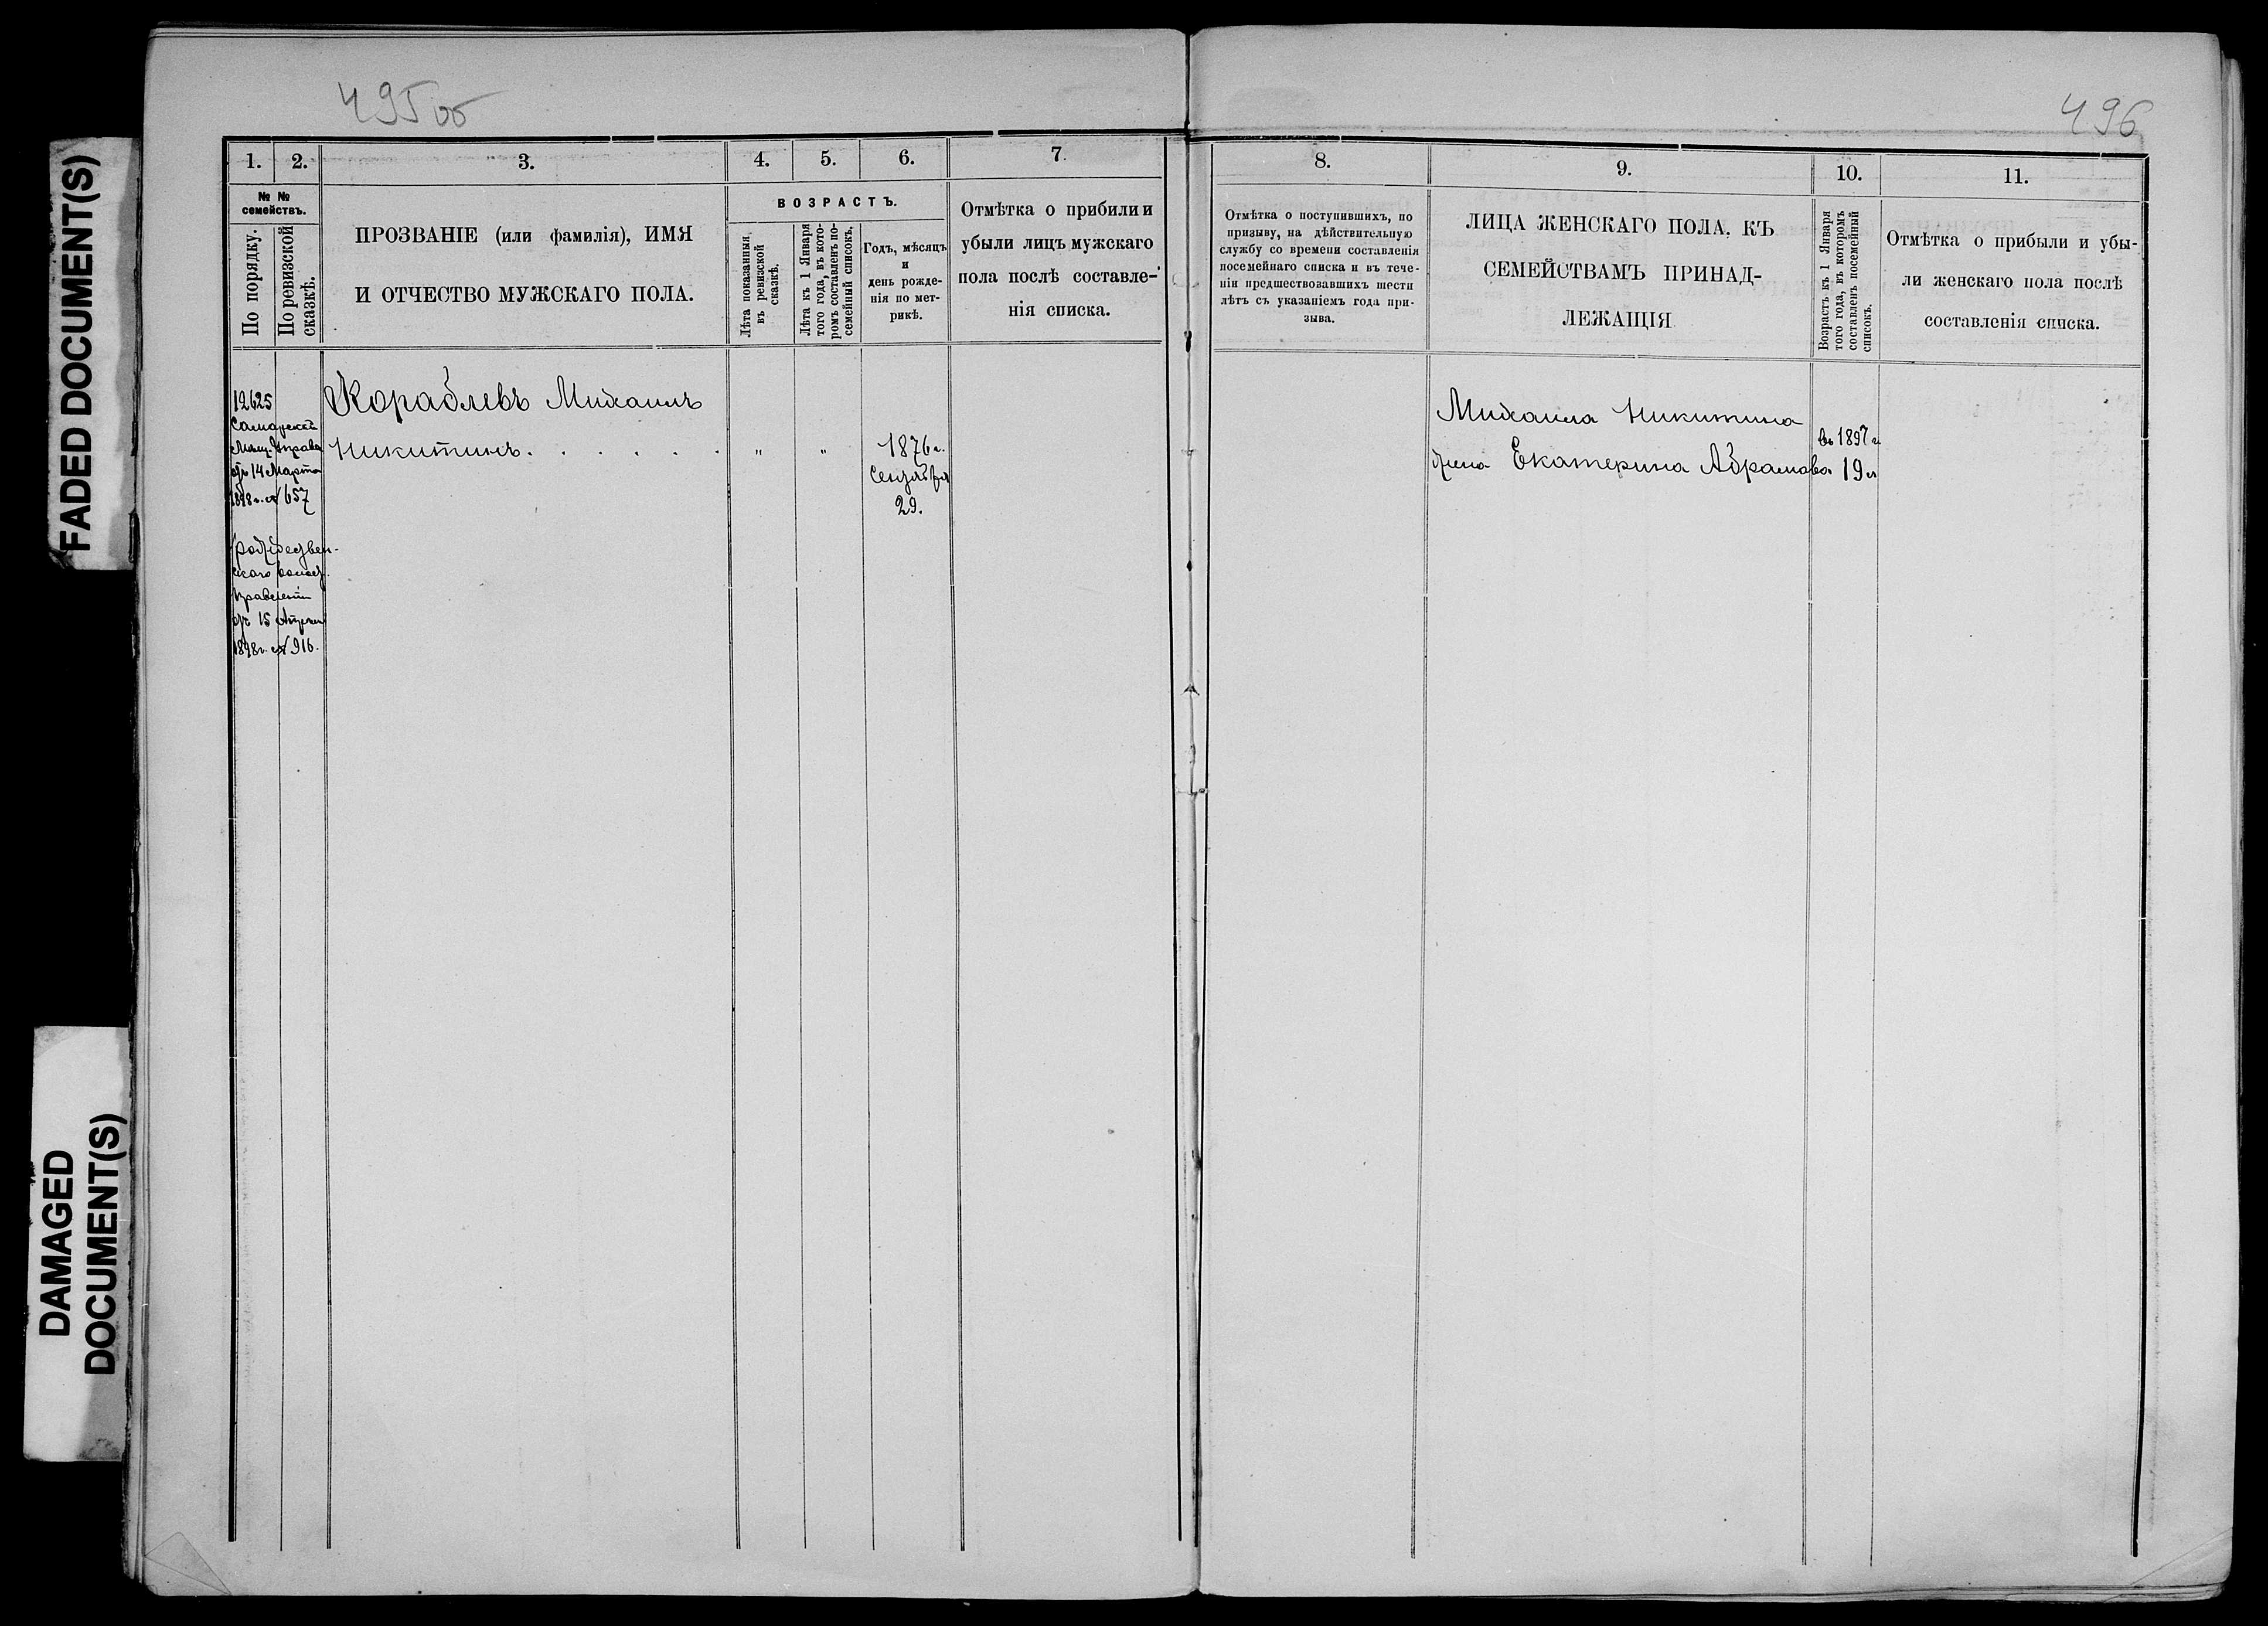 495 об
496
1.
2.
3.
4.
5.
6.
7.
№ №
семействъ.
По порядку.
По ревизской
сказкѣ.
ПРОЗВАНІЕ (или фамилія), ИМЯ
И ОТЧЕСТВО МУЖСКАГО ПОЛА.
ВОЗРАСТЪ.
Лѣта показанныя
въ ревизской
сказкѣ.
Лѣта къ 1 Января
того года, въ кото-
ромъ составленъ по-
семейный списокъ.
Годъ, мѣсяцъ
и
день рожде-
нія по мет-
рикѣ.
Отмѣтка о прибили и
убыли лицъ мужскаго
пола послѣ составле-
нія списка.
12625
Самарской
Мѣщ. Управы
отъ 14 Марта
1898 г. № 657
Рождествен-
скаго волост.
Правленія
отъ 15 Апрѣля
1898 г. № 916.
Кораблевъ Михаилъ
Никитинъ. . . . . .
"
"
1876 г.
Сентября
29.
8.
9.
10.
11.
Отмѣтка о поступившихъ, по
призыву, на дѣйствительную
службу со времени составленія
посемейнаго списка и въ тече-
ніи предшествовавшихъ шести
лѣтъ съ указаніемъ года при-
зыва.
ЛИЦА ЖЕНСКАГО ПОЛА, КЪ
СЕМЕЙСТВАМЪ ПРИНАД-
ЛЕЖАЩІЯ
Возрастъ къ 1 Января
того года, въ которомъ
составленъ посемейный
списокъ.
Отмѣтка о прибыли и убы-
ли женскаго пола послѣ
составленія списка.
Михаила Никитина
жена Екатерина Абрамова
въ 1897 г.
19 л
FADED DOCUMENT(S)
DAMAGED
DOCUMENT(S)